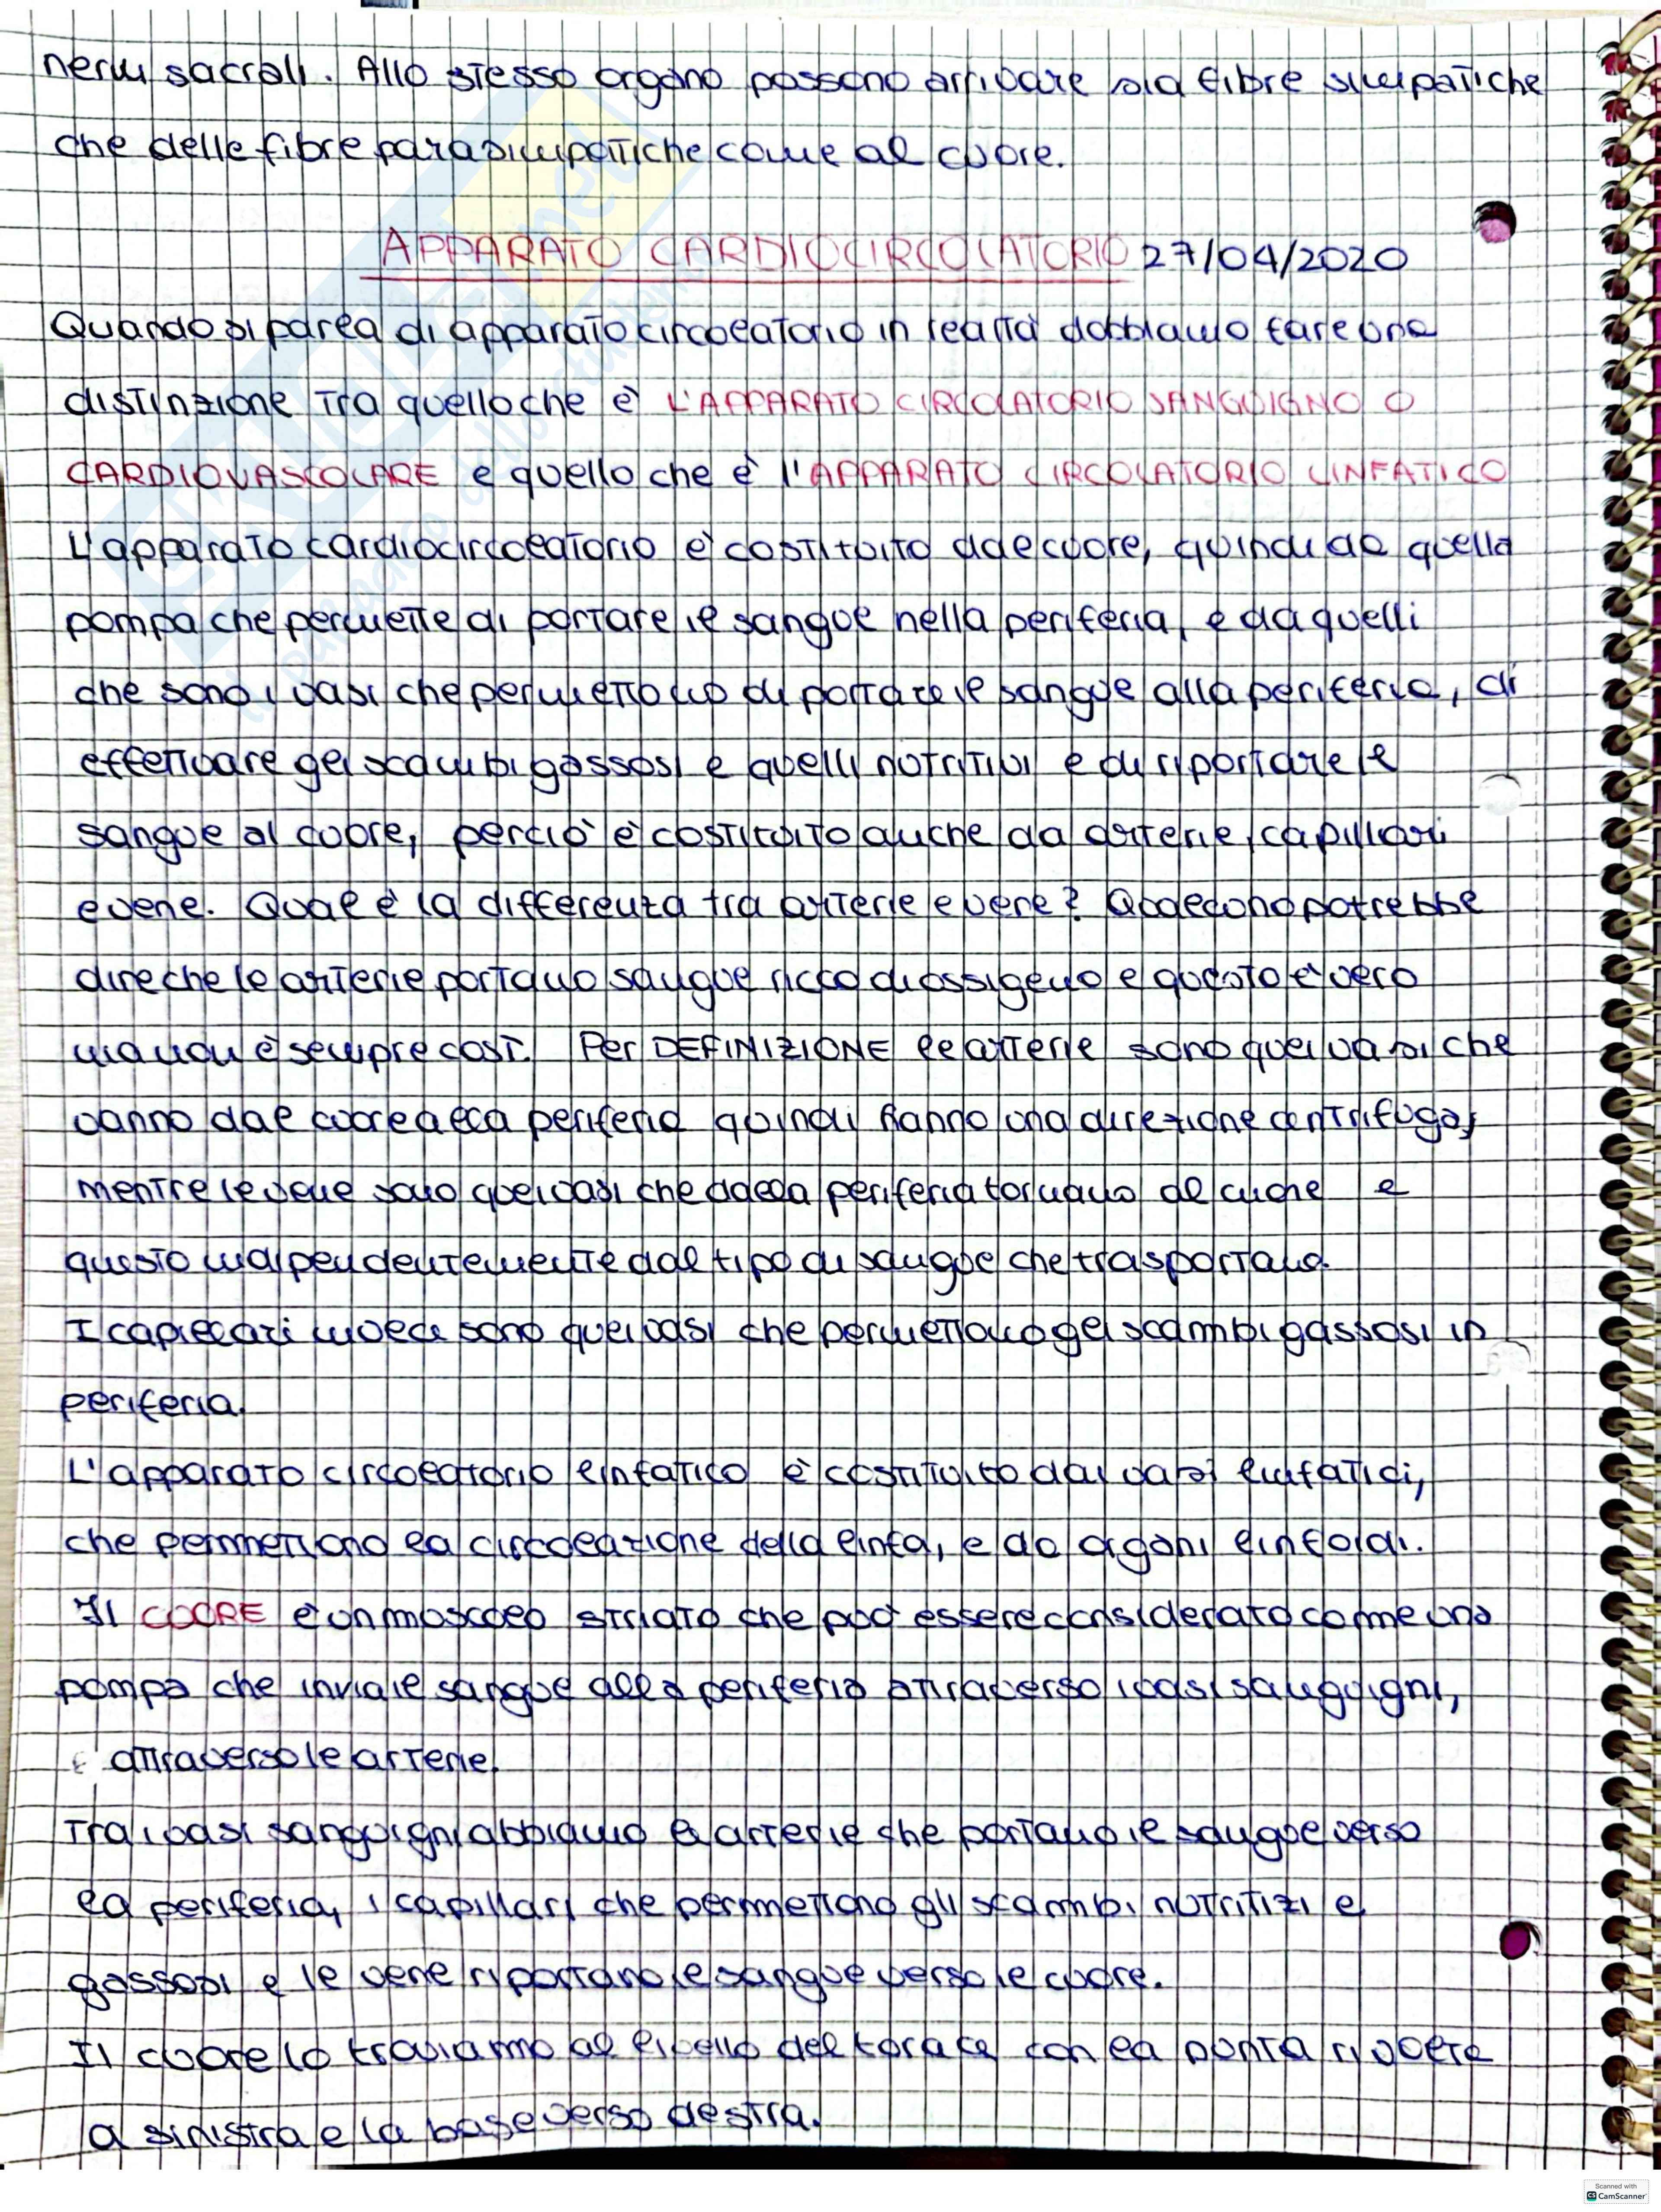 nervi sacrali. Allo stesso organo possono arrivare sia fibre simpatiche
che delle fibre parasimpatiche come al cuore.
APPARATO CARDIOCIRCOLATORIO 27/04/2020
Quando si parla di apparato circolatorio in realtà dobbiamo fare una
distinzione tra quello che è L'APPARATO CIRCOLATORIO SANGUIGNO O
CARDIOVASCOLARE e quello che è l'APPARATO CIRCOLATORIO LINFATICO
L'apparato cardiocircolatorio è costituito dal cuore, quindi da quella
pompa che permette di portare il sangue nella periferia, e da quelli
che sono i vasi che permettono di portare il sangue alla periferia, di
effettuare gli scambi gassosi e quelli nutritivi e di riportare il
sangue al cuore, perciò è costituito anche da arterie, capillari
e vene. Qual è la differenza tra arterie e vene? Qualcuno potrebbe
dire che le arterie portano sangue ricco di ossigeno e questo è vero
ma non è sempre così. Per DEFINIZIONE le arterie sono quei vasi che
vanno dal cuore alla periferia quindi hanno una direzione centrifuga,
mentre le vene sono quei vasi che dalla periferia tornano al cuore e
questo indipendentemente dal tipo di sangue che trasportano.
I capillari invece sono quei vasi che permettono gli scambi gassosi in
periferia.
L'apparato circolatorio linfatico è costituito dai vasi linfatici,
che permettono la circolazione della linfa, e da organi linfoidi.
Il CUORE è un muscolo striato che può essere considerato come una
pompa che invia il sangue alla periferia attraverso i vasi sanguigni,
e attraverso le arterie.
Tra i vasi sanguigni abbiamo le arterie che portano il sangue verso
la periferia, i capillari che permettono gli scambi nutritizi e
gassosi e le vene riportano il sangue verso il cuore.
Il cuore lo troviamo al livello del torace con la punta rivolta
a sinistra e la base verso destra.
Scanned with
CS CamScanner